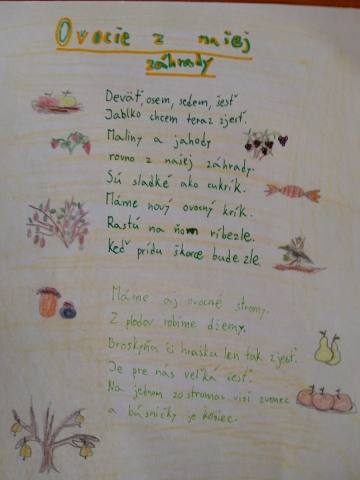 Ovocie z našej
záhrady
Deväť, osem, sedem, šesť
Jablko chcem teraz zjesť.
Maliny a jahody
rovno z našej záhrady.
Sú sladké ako cukrík.
Máme nový ovocný krík.
Rastú na ňom ríbezle.
Keď prídu škorce bude zle.
Máme aj ovocné stromy.
Z plodov robíme džemy.
Broskyňa či hrušku len tak zjesť.
Je pre nás veľká česť.
Na jednom zo stromov visí zvonec
a básničky je koniec.